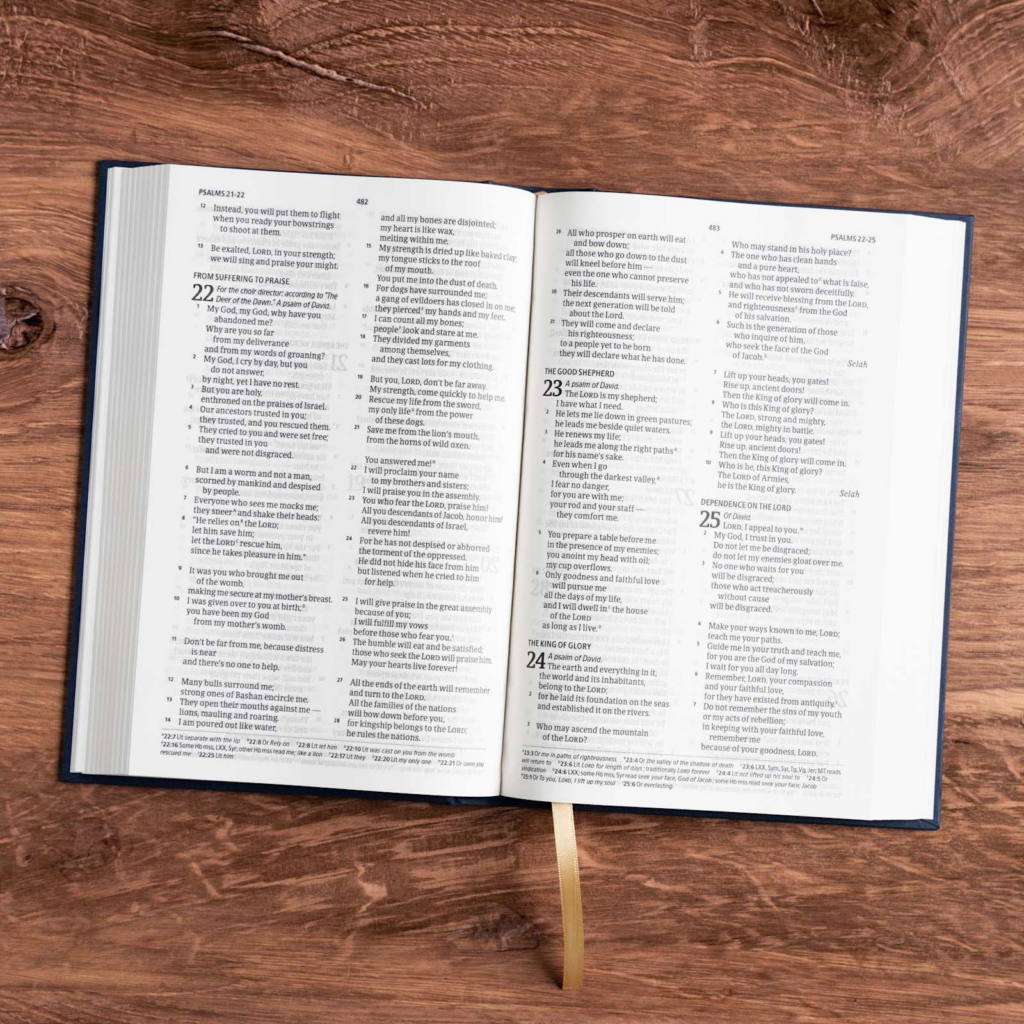 PSALMS 21-22
482
12 Instead, you will put them to flight
when you ready your bowstrings
to shoot at them.
13 Be exalted, LORD, in your strength;
we will sing and praise your might.
FROM SUFFERING TO PRAISE
22 For the choir director: according to "The
Deer of the Dawn." A psalm of David.
1 My God, my God, why have you
abandoned me?
Why are you so far
from my deliverance
and from my words of groaning?
2 My God, I cry by day, but you
do not answer,
by night, yet I have no rest.
3 But you are holy,
enthroned on the praises of Israel.
4 Our ancestors trusted in you;
they trusted, and you rescued them.
5 They cried to you and were set free;
they trusted in you
and were not disgraced.
6 But I am a worm and not a man,
scorned by mankind and despised
by people.
7 Everyone who sees me mocks me;
they sneer and shake their heads:
8 "He relies on the LORD;
let him save him;
let the LORD rescue him,
since he takes pleasure in him."
9 It was you who brought me out
of the womb,
making me secure at my mother's breast.
10 I was given over to you at birth;
you have been my God
from my mother's womb.
11 Don't be far from me, because distress
is near
and there's no one to help.
12 Many bulls surround me;
strong ones of Bashan encircle me.
13 They open their mouths against me —
lions, mauling and roaring.
14 I am poured out like water,
and all my bones are disjointed;
my heart is like wax,
melting within me.
15 My strength is dried up like baked clay;
my tongue sticks to the roof
of my mouth.
You put me into the dust of death.
16 For dogs have surrounded me;
a gang of evildoers has closed in on me;
they pierced my hands and my feet.
17 I can count all my bones;
people look and stare at me.
18 They divided my garments
among themselves,
and they cast lots for my clothing.
19 But you, LORD, don't be far away.
My strength, come quickly to help me.
20 Rescue my life from the sword,
my only life from the power
of these dogs.
21 Save me from the lion's mouth,
from the horns of wild oxen.
You answered me!
22 I will proclaim your name
to my brothers and sisters;
I will praise you in the assembly.
23 You who fear the LORD, praise him!
All you descendants of Jacob, honor him!
All you descendants of Israel,
revere him!
24 For he has not despised or abhorred
the torment of the oppressed.
He did not hide his face from him
but listened when he cried to him
for help.
25 I will give praise in the great assembly
because of you;
I will fulfill my vows
before those who fear you.
26 The humble will eat and be satisfied;
those who seek the LORD will praise him.
May your hearts live forever!
27 All the ends of the earth will remember
and turn to the LORD.
All the families of the nations
will bow down before you,
28 for kingship belongs to the LORD;
he rules the nations.
22:7 Lit separate with the lip 22:8 Or Rely on 22:8 Lit let him 22:10 Lit was cast on you from the womb
22:16 Some Hb mss, LXX, Syr; other Hb mss read me; like a lion 22:17 Lit they 22:20 Lit my only one 22:21 Or oxen you
rescued me 22:25 Lit him
483
PSALMS 22-25
29 All who prosper on earth will eat
and bow down;
all those who go down to the dust
will kneel before him —
even the one who cannot preserve
his life.
30 Their descendants will serve him;
the next generation will be told
about the Lord.
31 They will come and declare
his righteousness;
to a people yet to be born
they will declare what he has done.
THE GOOD SHEPHERD
23 A psalm of David.
The LORD is my shepherd;
I have what I need.
2 He lets me lie down in green pastures;
he leads me beside quiet waters.
3 He renews my life;
he leads me along the right paths
for his name's sake.
4 Even when I go
through the darkest valley,
I fear no danger,
for you are with me;
your rod and your staff —
they comfort me.
5 You prepare a table before me
in the presence of my enemies;
you anoint my head with oil;
my cup overflows.
6 Only goodness and faithful love
will pursue me
all the days of my life,
and I will dwell in the house
of the LORD
as long as I live.
THE KING OF GLORY
24 A psalm of David.
The earth and everything in it,
the world and its inhabitants,
belong to the LORD;
2 for he laid its foundation on the seas
and established it on the rivers.
3 Who may ascend the mountain
of the LORD?
Who may stand in his holy place?
4 The one who has clean hands
and a pure heart,
who has not appealed to what is false,
and who has not sworn deceitfully.
5 He will receive blessing from the LORD,
and righteousness from the God
of his salvation.
6 Such is the generation of those
who inquire of him,
who seek the face of the God
of Jacob.
Selah
7 Lift up your heads, you gates!
Rise up, ancient doors!
Then the King of glory will come in.
8 Who is this King of glory?
The LORD, strong and mighty,
the LORD, mighty in battle.
9 Lift up your heads, you gates!
Rise up, ancient doors!
Then the King of glory will come in.
10 Who is he, this King of glory?
The LORD of Armies,
he is the King of glory.
Selah
DEPENDENCE ON THE LORD
25 Of David.
LORD, I appeal to you.
2 My God, I trust in you.
Do not let me be disgraced;
do not let my enemies gloat over me.
3 No one who waits for you
will be disgraced;
those who act treacherously
without cause
will be disgraced.
4 Make your ways known to me, LORD;
teach me your paths.
5 Guide me in your truth and teach me,
for you are the God of my salvation;
I wait for you all day long.
6 Remember, LORD, your compassion
and your faithful love,
for they have existed from antiquity.
7 Do not remember the sins of my youth
or my acts of rebellion;
in keeping with your faithful love,
remember me
because of your goodness, LORD.
23:3 Or me in paths of righteousness 23:4 Or the valley of the shadow of death 23:6 LXX, Sym, Syr, Tg, Vg, Jer; MT reads
will return to 23:6 Lit LORD for length of days; traditionally LORD forever 24:4 Lit not lifted up his soul to 24:5 Or
vindication 24:6 LXX; some Hb mss, Syr read seek your face, God of Jacob; some Hb mss read seek your face, Jacob
25:1 Or To you, LORD, I lift up my soul 25:6 Or everlasting